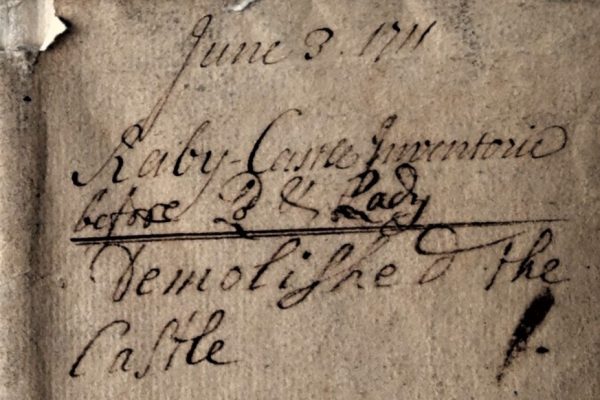 June 3. 1711
Raby-Castle Inventorie
before Ld & Lady
Demolished the
Castle !